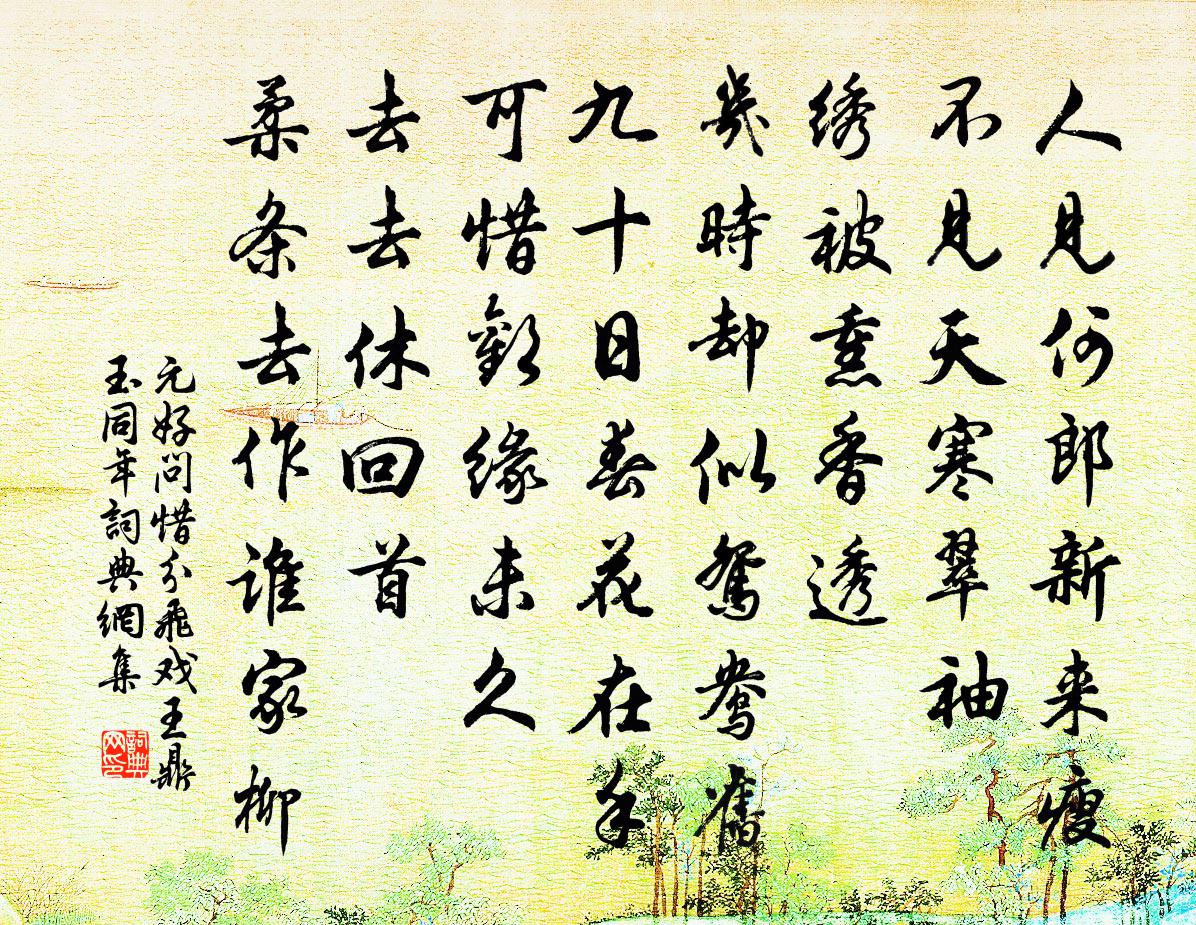 人见何郎新来瘦
不见天寒翠袖
绣被熏香透
几時却似鸳鸯旧
九十日春花在手
可惜歡缘未久
去去休回首
柔条去作谁家柳
元好问惜分飛戏王鼎
玉同年詞典網集
詞典
网印